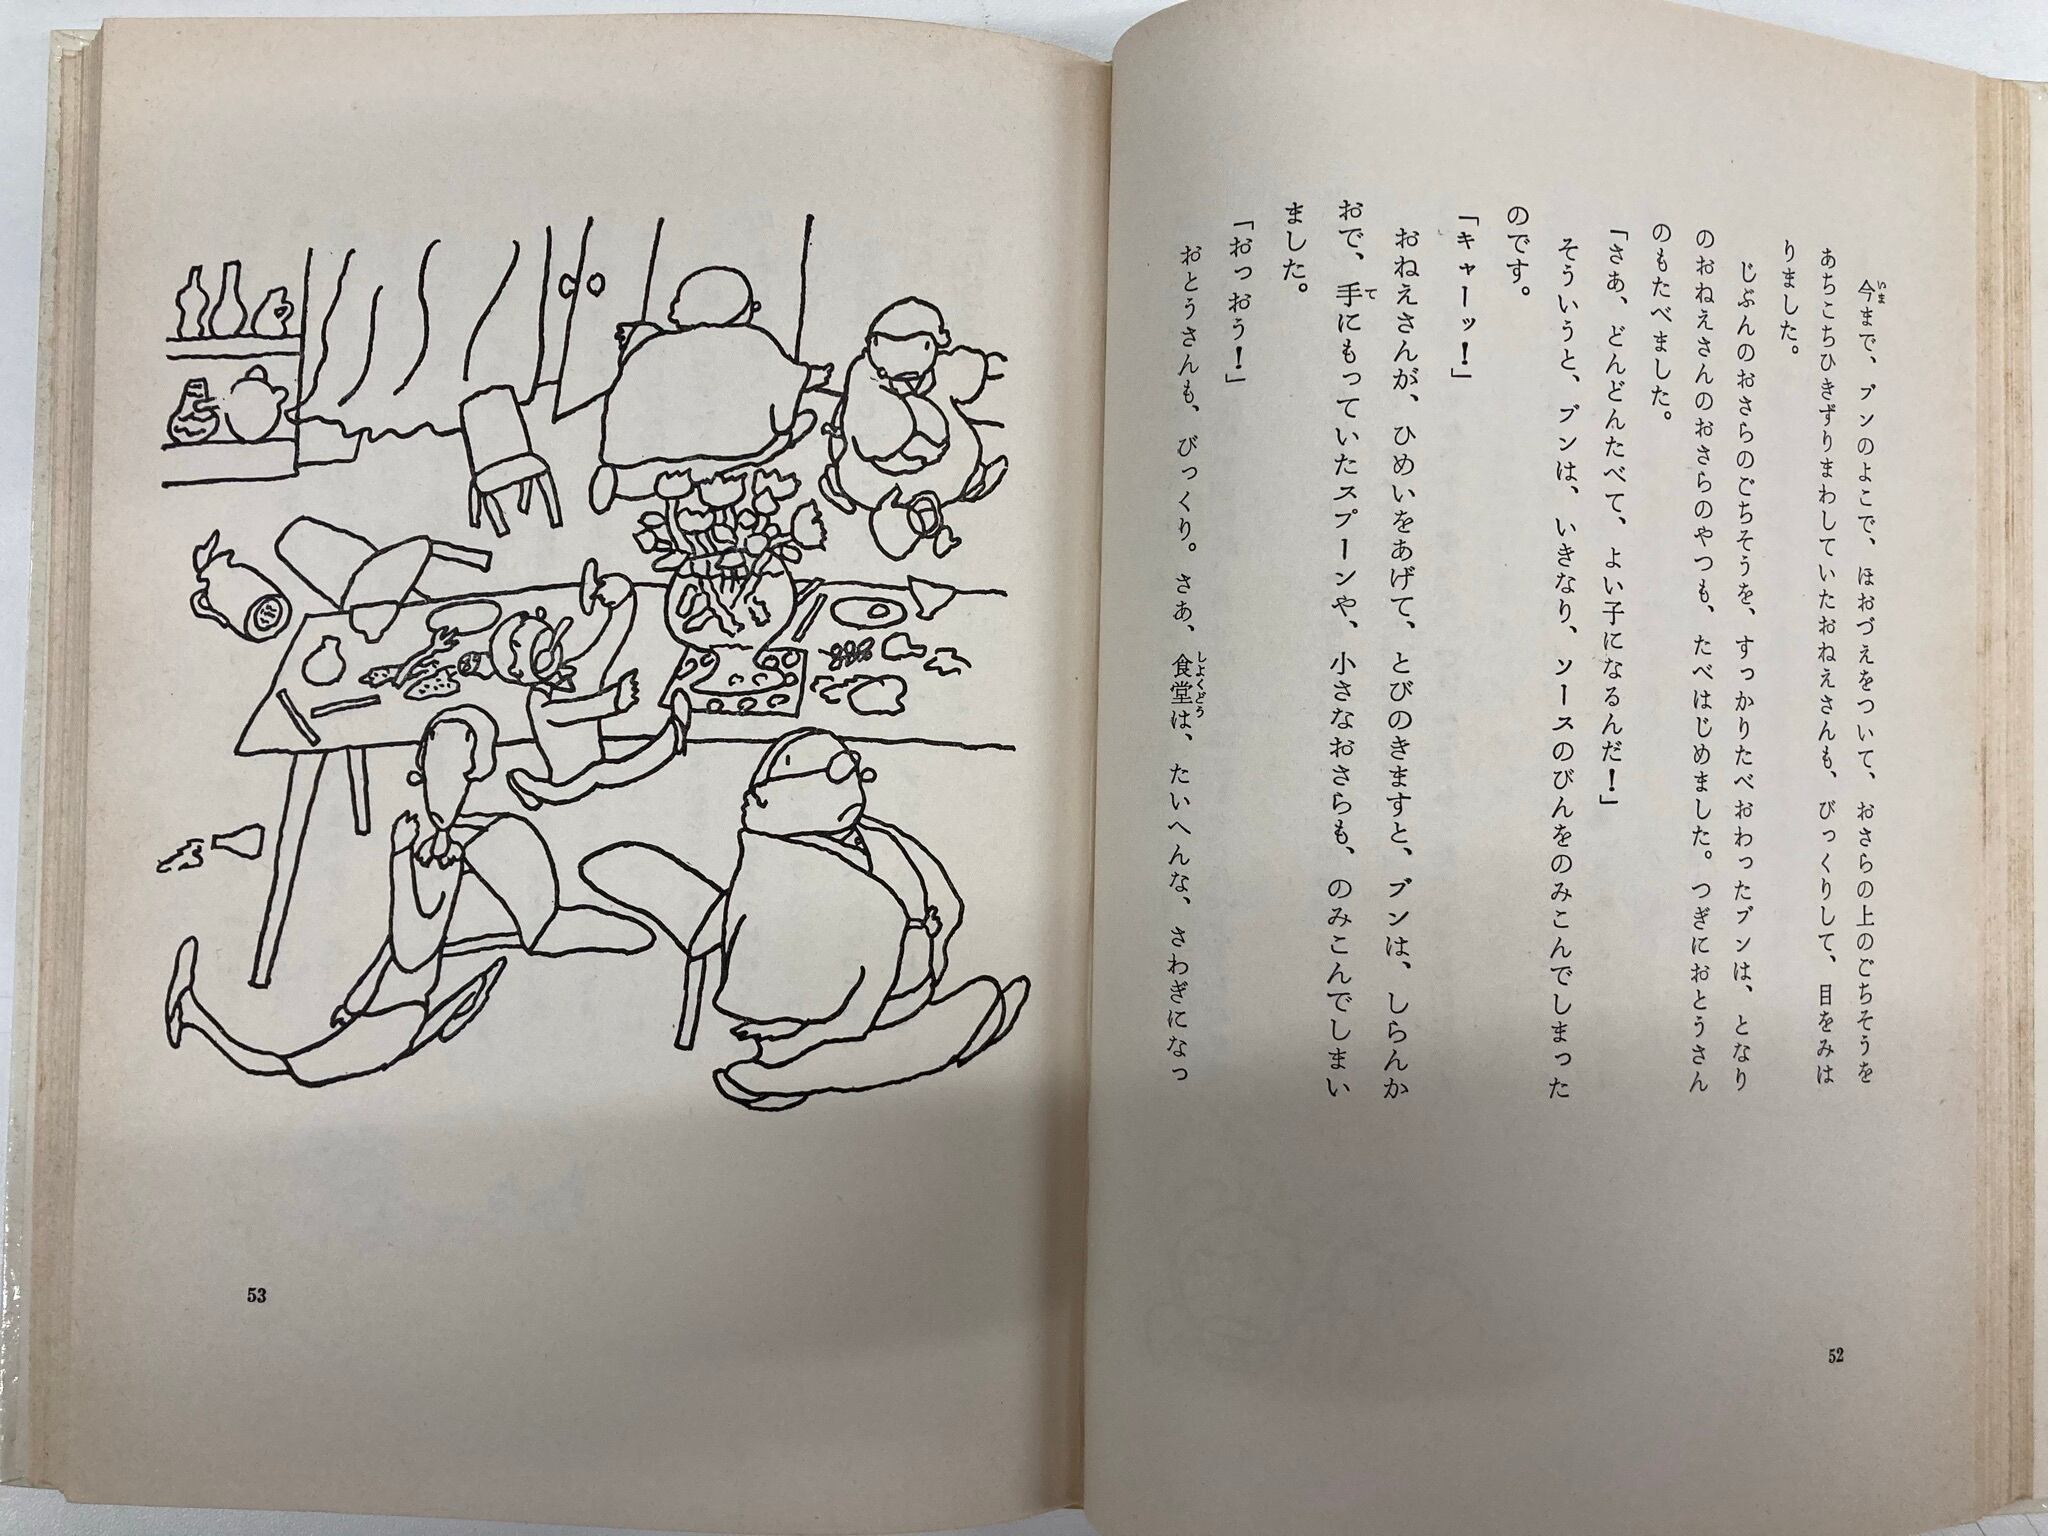 今まで、ブンのよこで、ほおづえをついて、おさらの上のごちそうを
あちこちひきずりまわしていたおねえさんも、びっくりして、目をみは
りました。
じぶんのおさらのごちそうを、すっかりたべおわったブンは、となり
のおねえさんのおさらのやつも、たべはじめました。つぎにおとうさん
のもたべました。
「さあ、どんどんたべて、よい子になるんだ！」
そういうと、ブンは、いきなり、ソースのびんをのみこんでしまった
のです。
「キャーッ！」
おねえさんが、ひめいをあげて、とびのきますと、ブンは、しらんか
おで、手にもっていたスプーンや、小さなおさらも、のみこんでしまい
ました。
「おっおう！」
おとうさんも、びっくり。さあ、食堂は、たいへんな、さわぎになっ
52
53